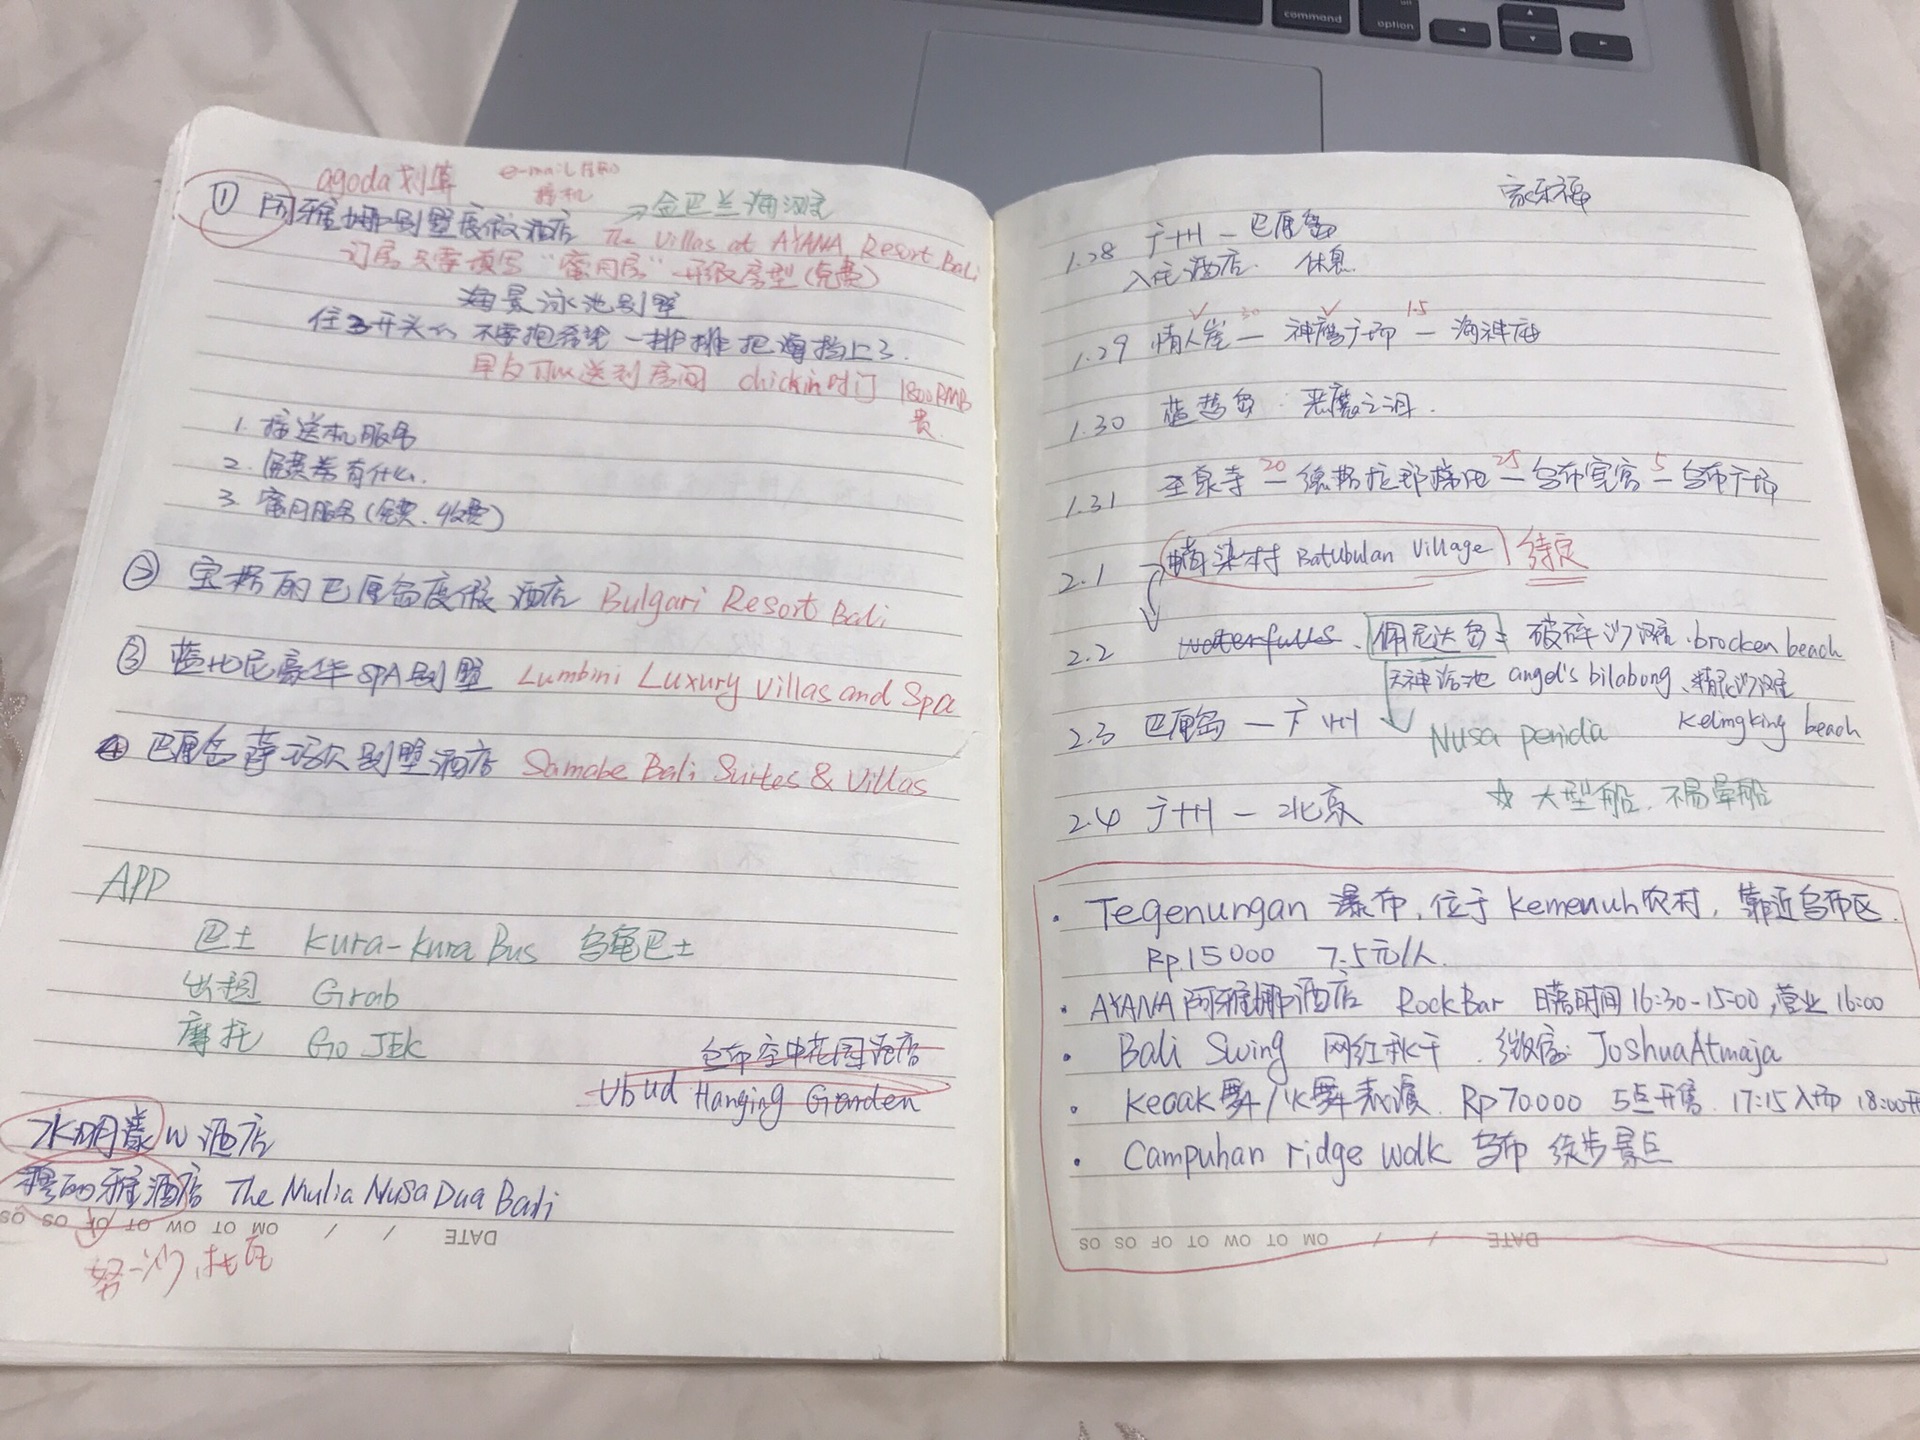 command
option
agoda划算
e-mail
接机
→金巴兰海滩
① 阿雅娜别墅度假酒店 The Villas at AYANA Resort Bali
订房只要填写“蜜月房”升级房型(免费)
海景泳池别墅
住3开头的 不要抱希望 一排排把海挡上了.
早名可以送到房间 chickin时订 1800RMB
贵.
1. 接送机服务
2. 房费若有什么.
3. 蜜月服务(免费、收费)
② 宝格丽巴厘岛度假酒店 Bulgari Resort Bali
③ 蓝比尼豪华SPA别墅 Lumbini Luxury Villas and Spa
④ 巴厘岛萨玛贝别墅酒店 Samabe Bali Suites & Villas
APP
巴士 Kura-Kura Bus 乌龟巴士
出租 Grab
摩托 GO JEK
乌布空中花园酒店
Ubud Hanging Grarden
水明漾W酒店
穆丽雅酒店 The Mulia Nusa Dua Bali
DATE / / OM OT OW OT OF OS OS
努沙
家乐福
1.28 广州 — 巴厘岛
入住酒店. 休息.
1.29 情人崖 — 30 神鹰广场 — 1.5 海神庙
1.30 蓝梦岛. 恶魔之泪.
1.31 圣泉寺 — 20 德格拉朗梯田 — 25 乌布皇宫 — 5 乌布市场
2.1 蜡染村 Batubulan Village 待定
2.2 waterfulls、佩尼达岛: 破碎沙滩.brocken beach
天神浴池 angel's bilabong、精灵沙滩
Kelingking beach
2.3 巴厘岛 — 广州
Nusa penida
2.4 广州 — 北京
☆ 大型船.不易晕船
· Tegenungan 瀑布,位于Kemenuh农村,靠近乌布区.
Rp.15000 7.5元/人.
· AYANA阿雅娜酒店 RockBar 日落时间16:30-15:00,营业16:00
· Bali Swing 网红秋千. 微信: JoshuaAtmaja
· Kecak舞/火舞表演. Rp70000 5点开售. 17:15入场 18:00开
· Campuhan ridge walk 乌布 徒步景点
DATE / / OM OT OW OT OF OS OS